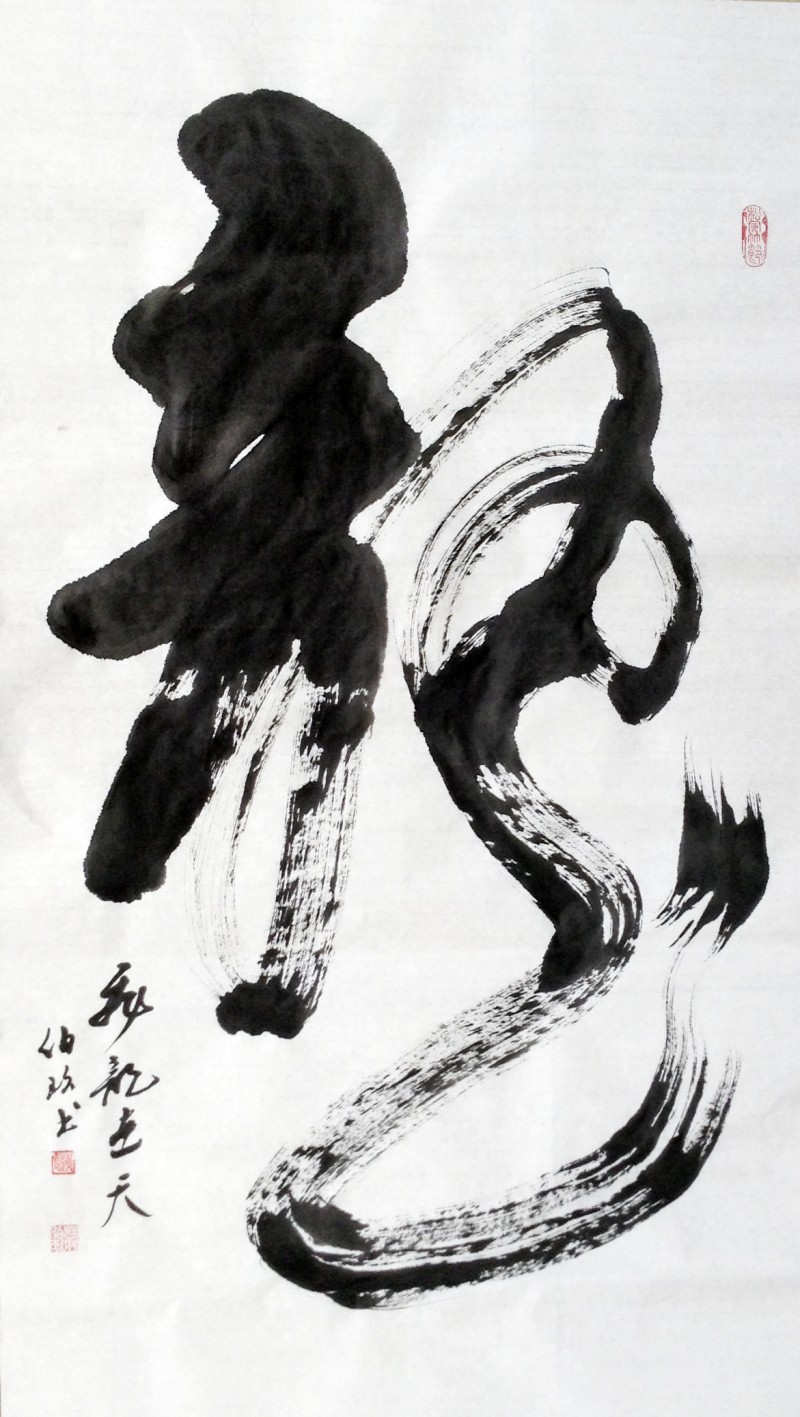 龍
飛龍在天
伯玖书